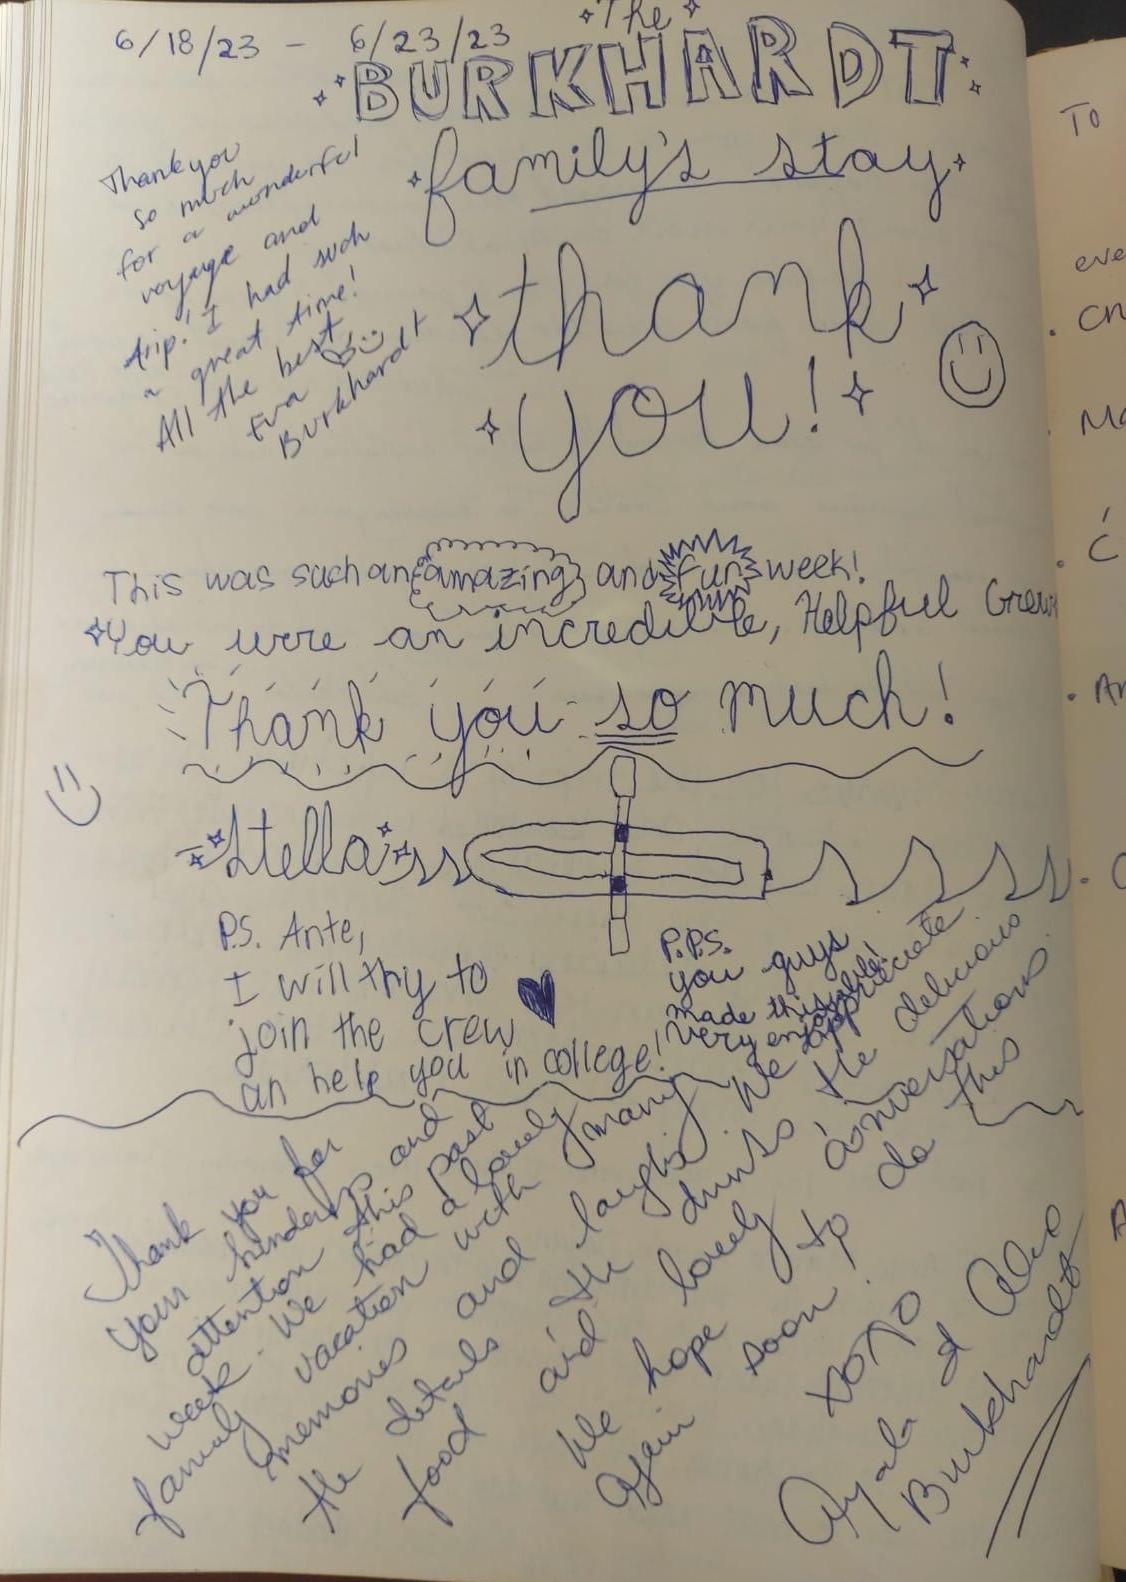 6/18/23 - 6/23/23
The
BURKHARDT
family's stay
Thank you
so much
for a wonderful
voyage and
trip! I had such
a great time!
All the best,
Eva
Burkhardt
thank
you!
This was such an amazing and fun week!
You were an incredible, Helpful Crew
Thank you so much!
Stella
P.S. Ante,
I will try to
join the crew
an help you in college!
P.P.S.
you guys
made this
very enjoyable!
Thank you for
your kindness and
attention this past
week. We had a lovely
family vacation with many
memories and laughs. We appreciate
the details and the drinks the delicious
food and lovely conversations.
We hope to do this
again soon!
XOXO
Ayala &
Burkhardt
To